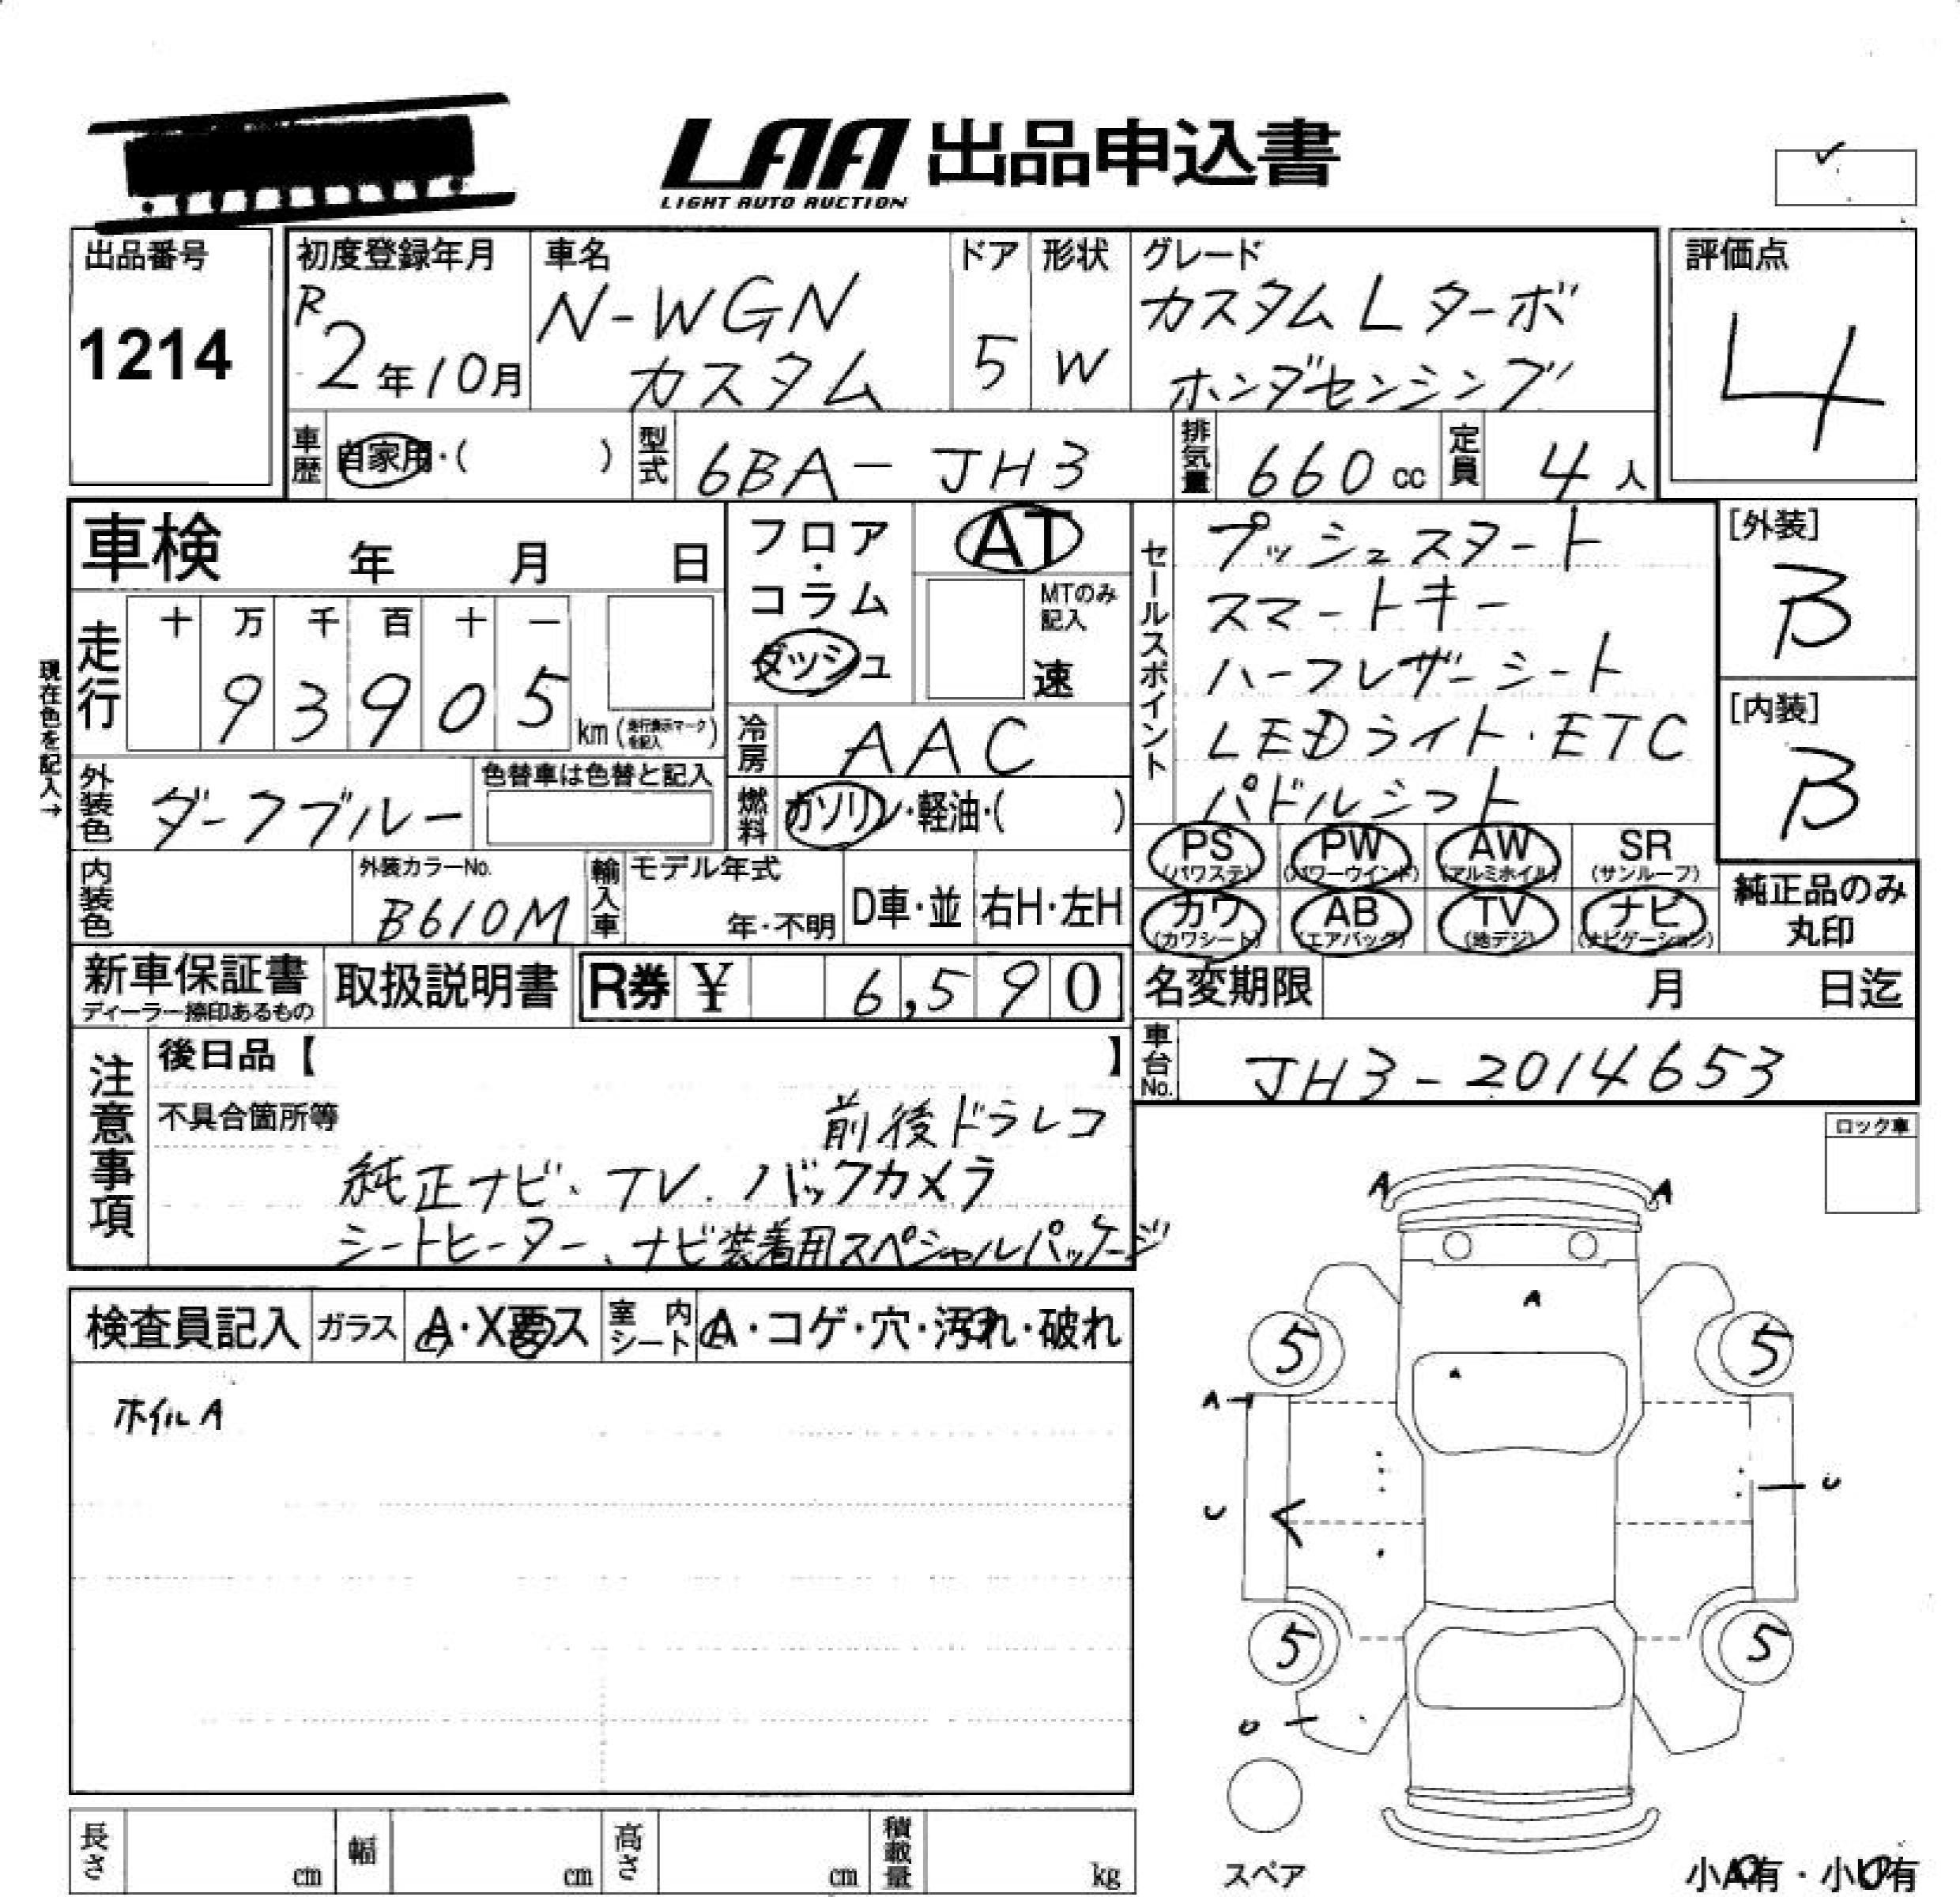 LAA 出品申込書
LIGHT AUTO AUCTION
出品番号
1214
初度登録年月
R
2年10月
車名
N-WGN
カスタム
ドア
5
形状
W
グレード
カスタム L ターボ
ホンダセンシング
評価点
4
車歴
自家用・( )
型式
6BA-JH3
排気量
660 cc
定員
4人
車検 年 月 日
走行
十 万 千 百 十 一
9 3 9 0 5
km(走行表示マークを記入)
現在色を記入→
フロア・
コラム
ダッシュ
AT
MTのみ
記入
速
セールスポイント
プッシュスタート
スマートキー
ハーフレザーシート
LEDライト・ETC
パドルシフト
[外装]
B
[内装]
B
冷房
AAC
燃料
ガソリン・軽油・( )
外装色
ダークブルー
色替車は色替と記入
内装色
外装カラーNo.
B610M
輸入車
モデル年式
年・不明
D車・並
右H・左H
PS
(パワステ)
PW
(パワーウインド)
AW
(アルミホイル)
SR
(サンルーフ)
カワ
(カワシート)
AB
(エアバッグ)
TV
(地デジ)
ナビ
(ナビゲーション)
純正品のみ
丸印
新車保証書
ディーラー捺印あるもの
取扱説明書
R券 ¥ 6,590
名変期限 月 日迄
車台No.
JH3-2014653
注意事項
後日品【 】
不具合箇所等
前後ドラレコ
純正ナビ、TV、バックカメラ
シートヒーター、ナビ装着用スペシャルパッケージ
ロック車
検査員記入
ガラス
A・X要ス
室内
シート
A・コゲ・穴・汚れ・破れ
ホイルA
A
A
A
5
5
A
U
U
5
5
スペア
小A有・小U有
長さ
cm
幅
cm
高さ
cm
積載量
kg